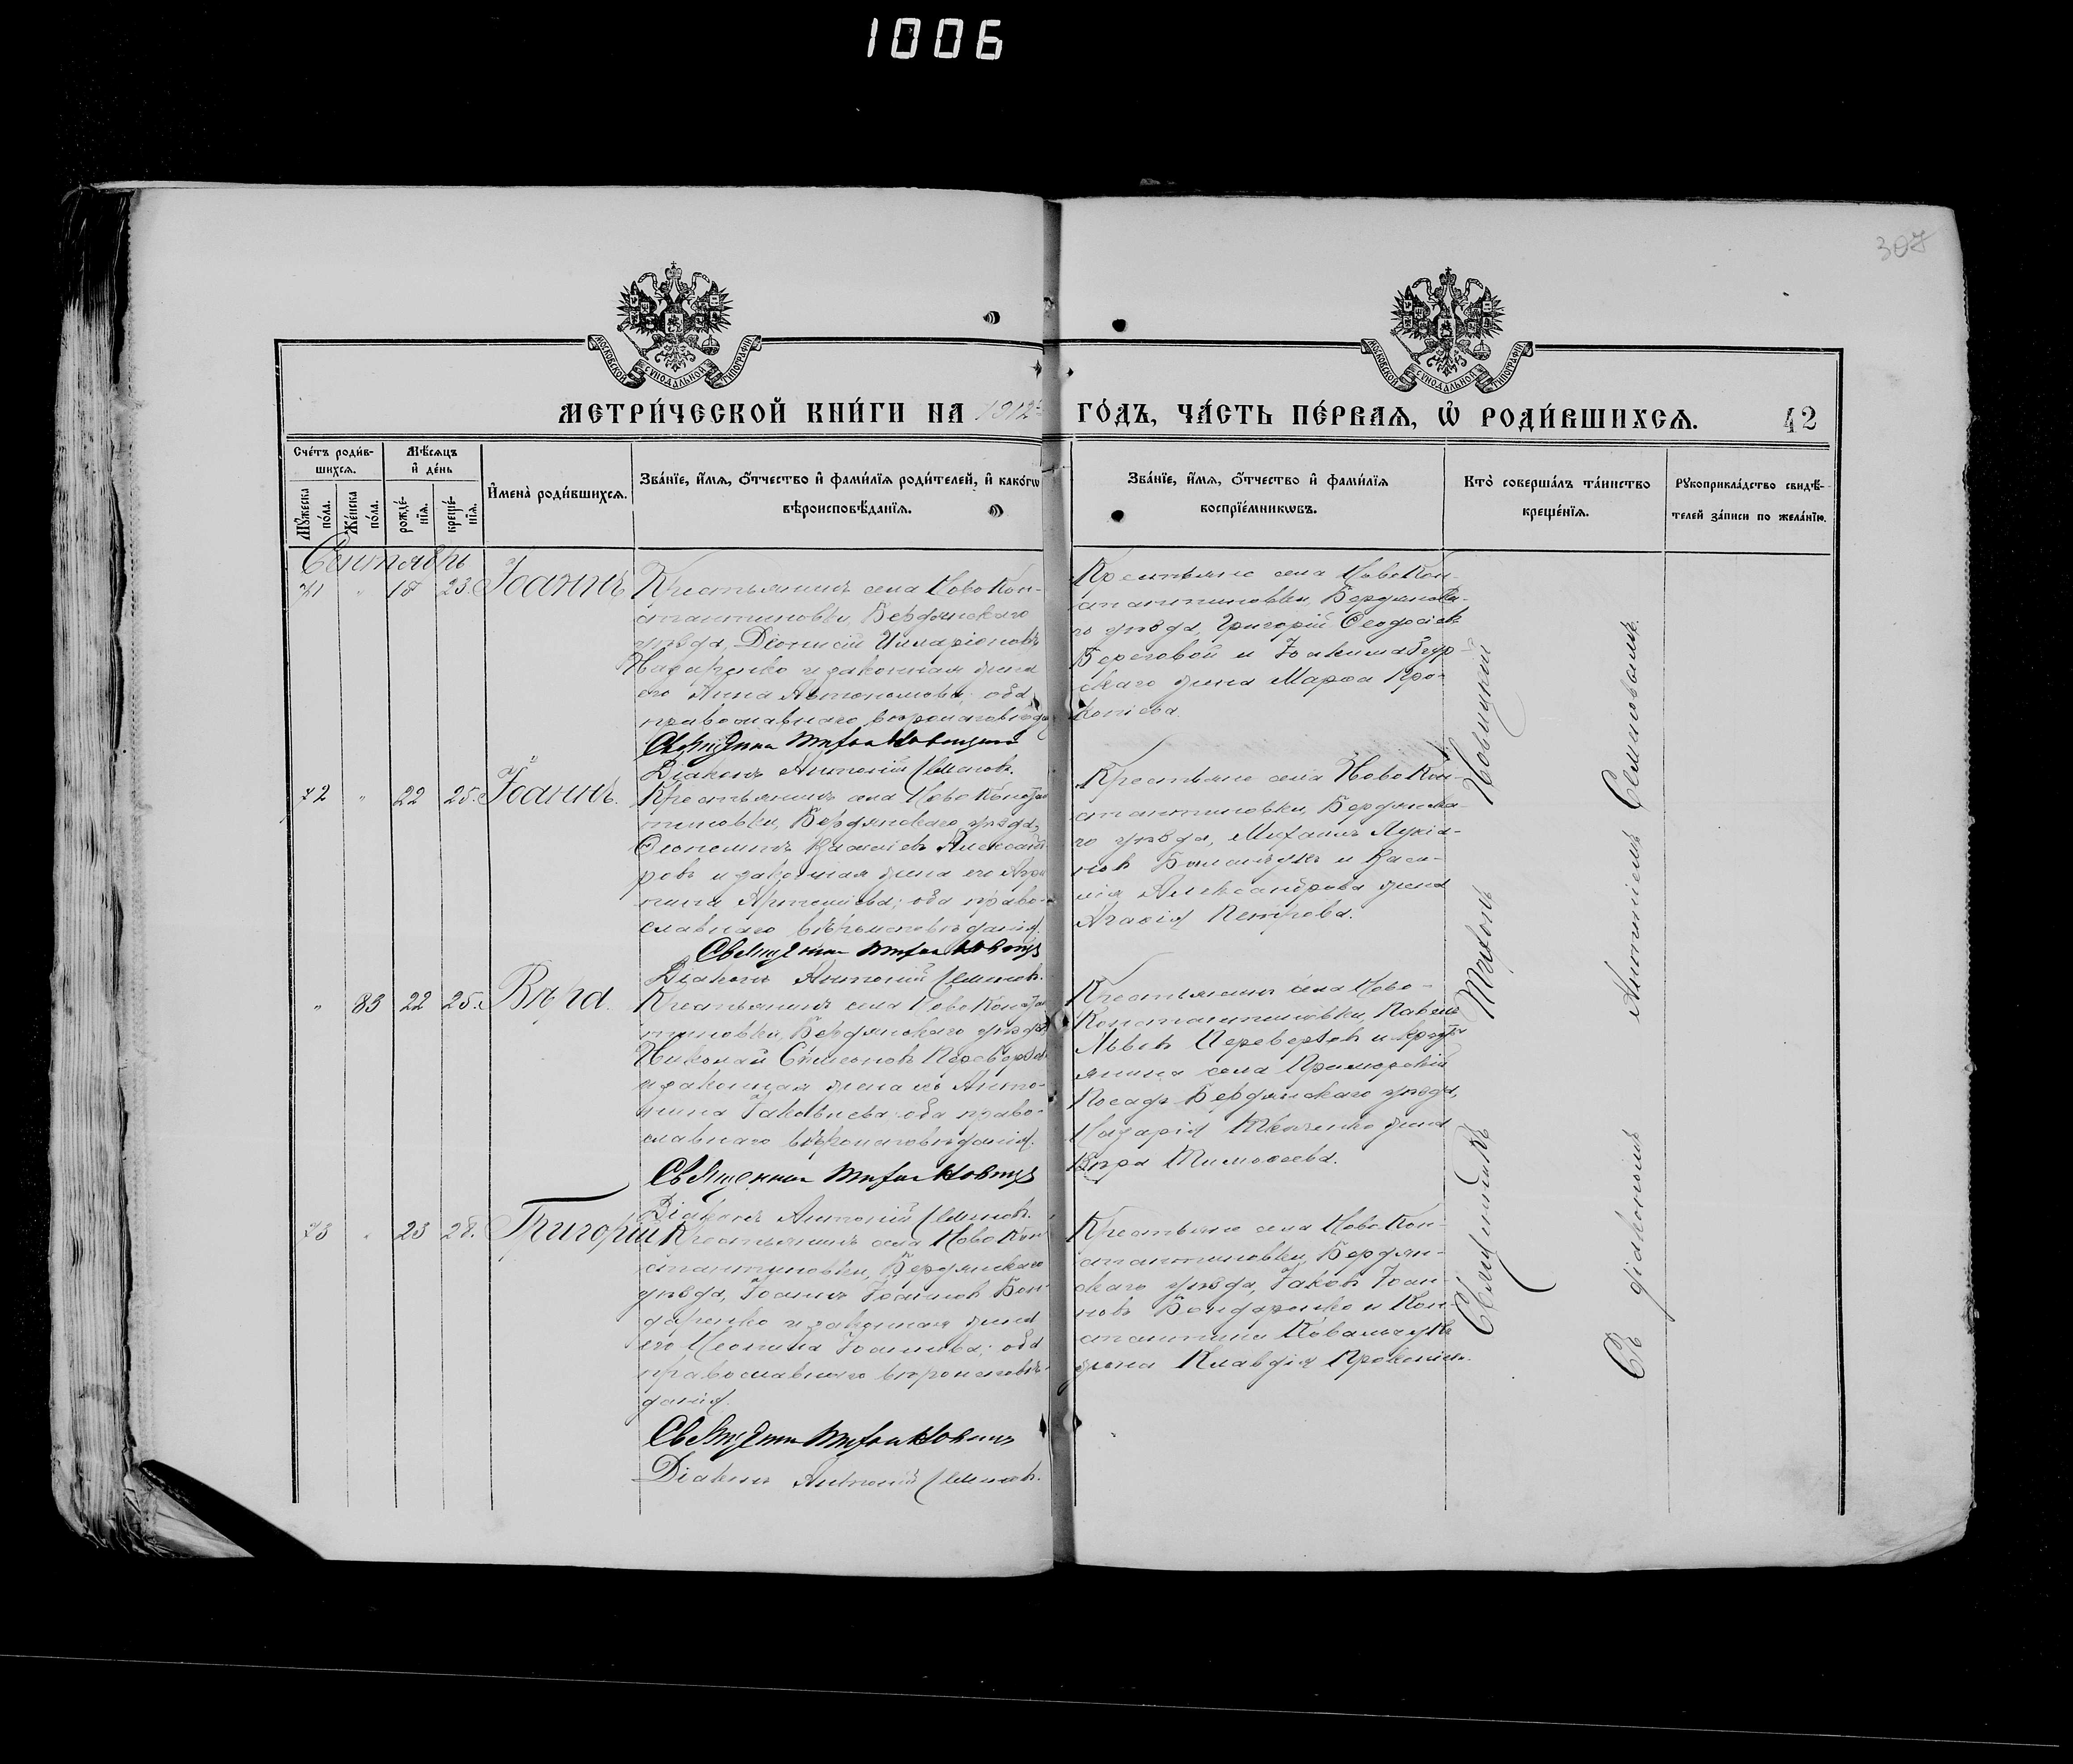 1006
307
МОСКОВСКОЙ СѴНОДАЛЬНОЙ ТИПОГРАФІИ
МОСКОВСКОЙ СѴНОДАЛЬНОЙ ТИПОГРАФІИ
МЕТРИ́ЧЕСКОЙ КНИ́ГИ НА 1912 ГО́ДЪ, ЧА́СТЬ ПЕ́РВАѦ, Ѡ҆ РОДИ́ВШИХСѦ.
42
Сче́тъ роди́в-
шихсѧ.
Мѣ́сѧцъ
и҆ де́нь
Мꙋ́жеска
по́ла.
Же́нска
по́ла.
рожде́-
нїѧ.
креще́-
нїѧ.
И҆мена̀ роди́вшихсѧ.
Зва́нїе, и҆́мѧ, ѻ҆́тчество и҆ фами́лїѧ роди́телей, и҆ како́гѡ
вѣроисповѣ́данїѧ.
Зва́нїе, и҆́мѧ, ѻ҆́тчество и҆ фами́лїѧ
воспрїе́мникѡвъ.
Кто̀ соверша́лъ та́инство
креще́нїѧ.
Рꙋкоприкла́дство свидѣ́-
телей за́писи по жела́нїю.
Сентябрь
71 " 18 23. Іоаннъ
Крестьянинъ села Ново Кон-
стантиновки, Бердянскаго
уѣзда, Діонисій Иларіоновъ
Назаренко и законная жена
его Анна Автономова; оба
православнаго вѣроисповѣда
Священник Митрофан Новицкий
Діаконъ Антоній Семеновъ.
Крестьяне села Ново Кон-
стантиновки, Бердянска-
го уѣзда, Григорій Ѳеодосіевъ
Береговой и Іоакима Згур-
скаго жена Марѳа Про-
копіева.
72 " 22 25. Іоаннъ.
Крестьянинъ села Ново Констан
тиновки, Бердянскаго уѣзда,
Александ-
ровъ и законная жена его
Артеміева; оба право-
славнаго вѣроисповѣданія.
Священник Новицк
Діаконъ Антоній Семеновъ.
Крестьяне села Ново Кон-
стантиновки, Бердянска-
го уѣзда, Михаилъ Лукіа-
новъ и Васи-
лія Александрова жена
Агаѳія Петрова.
" 83 22 25. Вѣра.
Крестьянинъ села Ново Констан
тиновки, Бердянскаго уѣзда
Николай Сѵмеоновъ Переверзев
и законная жена его Анто-
нина Іаковлева; оба право-
славнаго вѣроисповѣданія.
Священник Новицк
Діаконъ Антоній Семеновъ.
Крестьянинъ села Ново-
Константиновки, Павелъ
Львовъ Переверзевъ и крест-
янина села Приморскій
Посадъ Бердянскаго уѣзда,
Назарія Ткаченко жена
Вѣра Тимоѳеева.
73 " 23 28. Григорій
Крестьянинъ села Ново Кон
стантиновки, Бердянскаго
уѣзда, Іоаннъ Іоанновъ Бон-
даренко и законная жена
его Неонила Іоаннова; оба
православнаго вѣроисповѣ-
данія.
Священник Новицк
Діаконъ Антоній Семеновъ.
Крестьяне села Ново Кон-
стантиновки, Бердян-
скаго уѣзда, Іаковъ Іоан-
новъ Бондаренко и Кон-
стантина Ковальчукъ
жена Клавдія Прокопіев.
Священникъ Новицкій
Съ діакономъ Антоніемъ Семеновымъ.